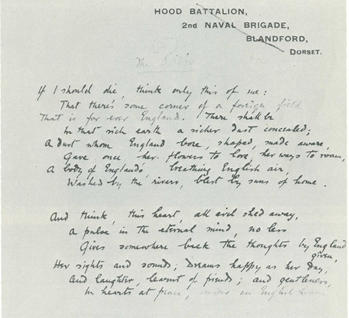 HOOD BATTALION,
2nd NAVAL BRIGADE,
BLANDFORD,
DORSET.
The
If I should die, think only this of me:
That there's some corner of a foreign field
That is for ever England. There shall be
In that rich earth a richer dust concealed;
A dust whom England bore, shaped, made aware,
Gave once her flowers to love, her ways to roam,
A body of England's breathing English air,
Washed by the rivers, blest by suns of home.
And think, this heart, all evil shed away,
A pulse in the eternal mind, no less
Gives somewhere back the thoughts by England
given,
Her sights and sounds; dreams happy as her day;
And laughter, learnt of friends; and gentleness,
In hearts at peace, under an English heaven.